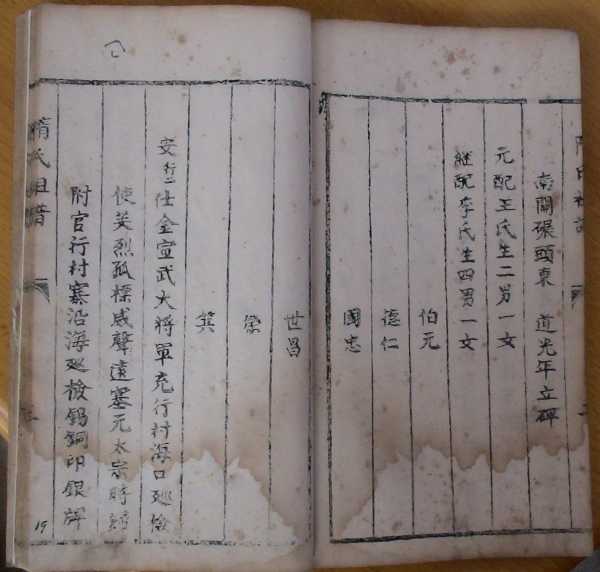 南關碾頭東 道光年立碑
元配王氏生二男一女
継配李氏生四男一女
伯元
德仁
國忠
世昌
榮
箕
安行二仕金宣武大將軍充行村海口廵檢
使英烈孤標威聲遠塞元太宗時
附官行村寨沿海廵檢錫銅印銀牌
隋氏祖譜
19